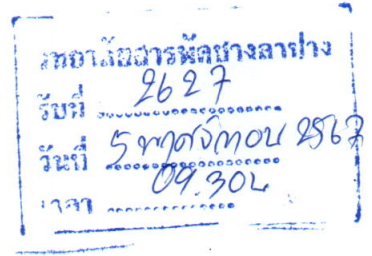 วิทยาลัยสารพัดช่างลำปาง
รับที่ 2627
วันที่ 5 พฤศจิกายน 2567
เวลา 09.30น